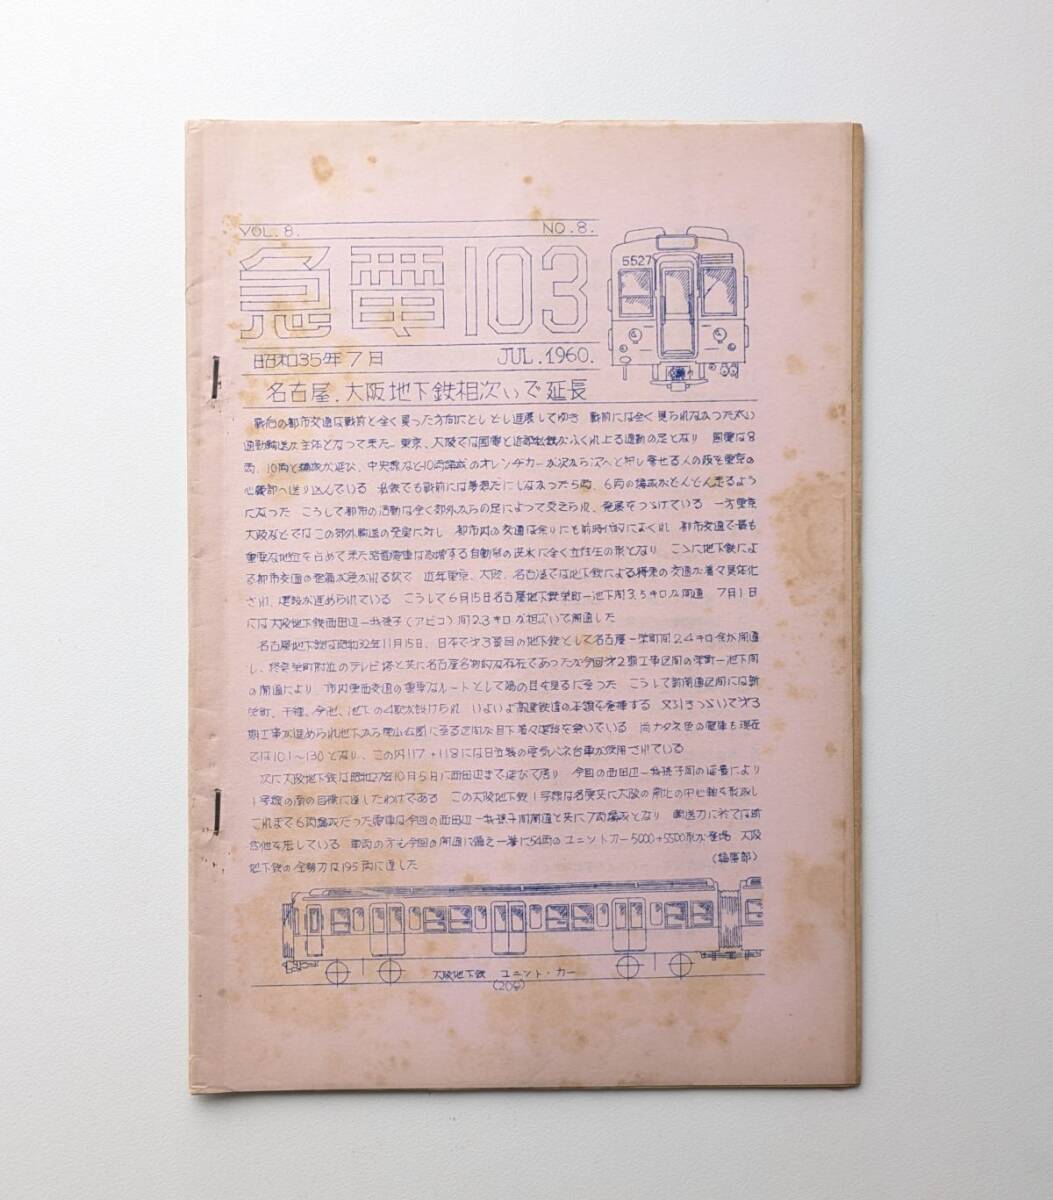 VOL. 8.
NO. 8.
急電103
5527
昭和35年7月
JUL. 1960.
名古屋、大阪地下鉄相次いで延長
戦后の都市交通は戦前と全く異った方向にとしとし進展してゆき 戦前には全く見られなかった太い
通勤輸送が主体となって来た。東京、大阪では国電と近郊私鉄がふくれ上る通勤の足となり 国電は8
両、10両と編成が延び、中央線など10両編成のオレンヂカーが次から次へと押し寄せる人の波を東京の
心臓部へ送り込んでいる 私鉄でも戦前には夢想だにしなかった5両、6両の編成がどんどん走るよう
になった こうして都市の活動は全く郊外からの足によって支えられ、発展をつづけている 一方東京
大阪などではこの郊外輸送の発展に対し 都市内の交通は余りにも前時代的におくれ 都市交通で最も
重要な地位を占めて来た路面電車は急増する自動車の洪水に全く立往生の形となり こゝに地下鉄によ
る都市交通の整備が急がれる訳で 近年東京、大阪、名古屋では地下鉄による将来の交通が着々具体化
され、建設が進められている こうして6月15日名古屋地下鉄栄町ー池下間3.5キロが開通 7月1日
には大阪地下鉄西田辺ー我孫子(アビコ)間2.3キロが相次いで開通した
名古屋地下鉄は昭和32年11月15日、日本で第3番目の地下鉄として名古屋ー栄町間2.4キロ余が開通
し、終点栄町附近のテレビ塔と共に名古屋名物的な存在であったが今回第2期工事区間の栄町ー池下間
の開通により、市内東西交通の重要なルートとして陽の目を見るに至った こうして新開通区間には新
栄町、千種、今池、池下の4駅が設けられ いよいよ都市鉄道の本領を発揮する 又引きつづいて第3
期工事が進められ池下から東山公園に至る区間が目下着々建設を急いでいる 尚ナタネ色の電車も現在
では101〜130となり、この内117+118には日立製の空気バネ台車が使用されている
次に大阪地下鉄は昭和27年10月5日に西田辺まで延びて居り 今回の西田辺ー我孫子間の延長により
1号線の南の目標に達したわけである この大阪地下鉄1号線は名実共に大阪の南北の中心軸を形成し
これまで6両編成だった電車は今回の西田辺ー我孫子間開通と共に7両編成となり 輸送力に於ては断
然他を圧している 車両の方も今回の開通に備え一挙に54両のユニットカー5000+5500形が登場 大阪
地下鉄の全勢力は195両に達した
(編集部)
大阪地下鉄 ユニット・カー